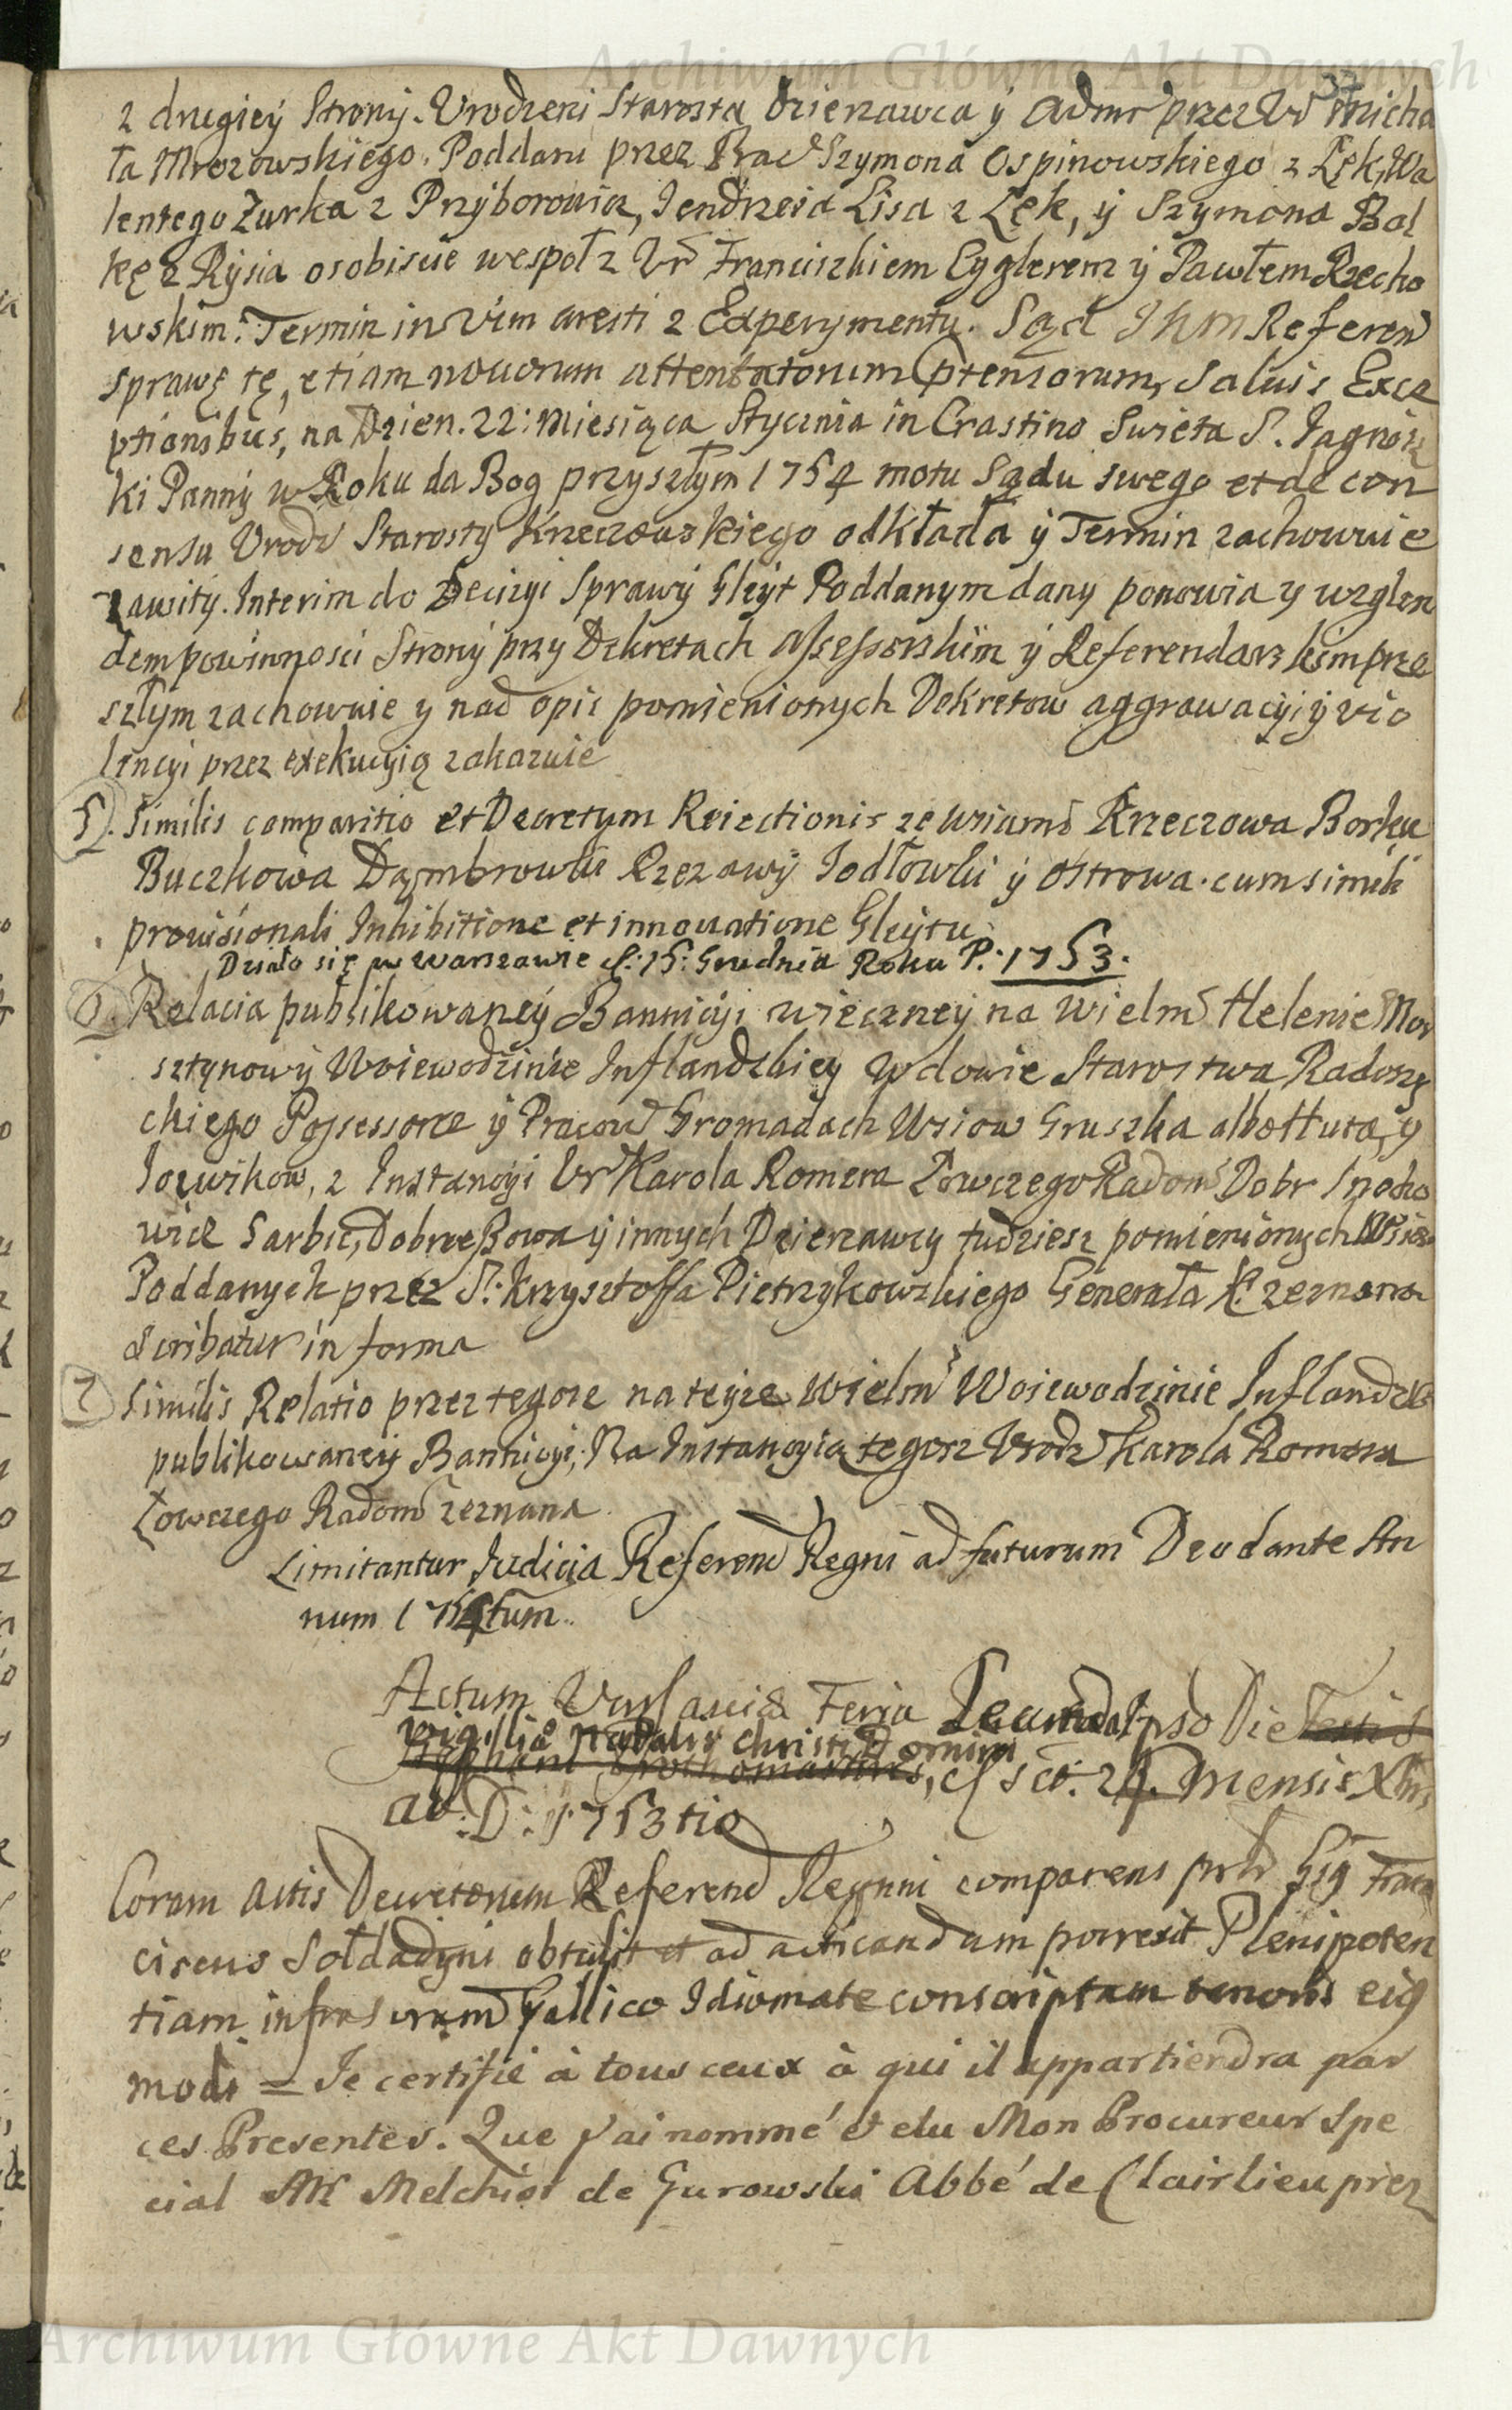 Archiwum Główne Akt Dawnych
37
z drugiey Strony. Urodzeni Starosta Dzierzawca y Admr przez Ur Micha
ła Mrozowskiego. Poddani przez Prac Szymona Ospinowskiego z Łęk, Wa
lentego Zurka z Przyborowia, Jendrzeia Lisa z Łęk, y Szymona Bal
kę z Rysia osobiscie wespoł z Ur Franciszkiem Cyglerem y Pawłem Rzecho
wskim. Termin in vim aresti z Experymentu. Sąd Jhm Referen
sprawę tę, etiam novorum attentatorum ptensorum, salvis Exce
ptionibus, na Dzien. 22: Miesiąca Stycznia in Crastino Swięta S. Jagnisz
ki Panny w Roku da Bog przyszłym 1754 motu Sądu swego et de con
sensu Urodz Starosty Krzeczowskiego odkłada y Termin zachowuie
zawity. Interim do Decizyi Sprawy Gleyt Poddanym dany ponowia y wzglen
dem powinnosci Strony przy Dekretach Assessorskim y Referendarskim prze
szłym zachowuie y nad opis pomienionych Dekretow aggrawacyi y vio
lencyi przez exekucyią zakazuie
5. Similis comparitio et Decretum Reiectionis ze wsiami Krzeczowa Borku
Buczkowa Dąmbrowki Rzezawy Jodłowki y Ostrowa. cum simili
provisionali Inhibitione et innovatione Gleytu.
Działo się w Warszawie d: 15: Grudnia Roku P.: 1753.
6. Relacia publikowaney Bannicyi wieczney na Wielm Helenie Mor
sztynowy Woiewodzinie Inflandzkiey Wdowie Starostwa Radoszy
ckiego Possessorce y Pracow Gromadach Wsiow Gruszka albo Huta, y
Jozwikow, z Instancyi Ur Karola Romera Łowczego Radom Dobr Snocho
wice Sarbic, Dobrzeszowa y innych Dzierzawcy tudziesz pomienionych Wsiow
Poddanych przez S: Krzysztoffa Pietrzykowskiego Generała K. zeznana
Scribatur in forma
7 Similis Relatio przez tegosz na teyze Wielm Woiewodzinie Inflandzk
publikowaney Bannicyi, Na Instancyią tegosz Urodz Karola Romera
Łowczego Radom zeznana
Limitantur Judicia Referend Regni ad futurum Deo dante An
num 1754tum.
Actum Varsaviae Feria Secunda Ipso Die
vigiliae Natalis Christi Domini
, d sct. 24. Mensis Xbris
aō: D: 1753tio
Coram Actis Decretorum Referend Regni comparens prtr Gsg Fran
ciscus Sołdadyni obtulit et ad acticandum porrexit Plenipoten
tiam infrascram Gallico Idiomate conscriptam tenoris eiq
modi = Je certifie à tous ceux à qui il appartiendra par
ces Presentes. Que j'ai nommé et elu Mon Procureur Spe
cial Mr Melchior de Gurowski Abbé de Clairlieu prez
Archiwum Główne Akt Dawnych